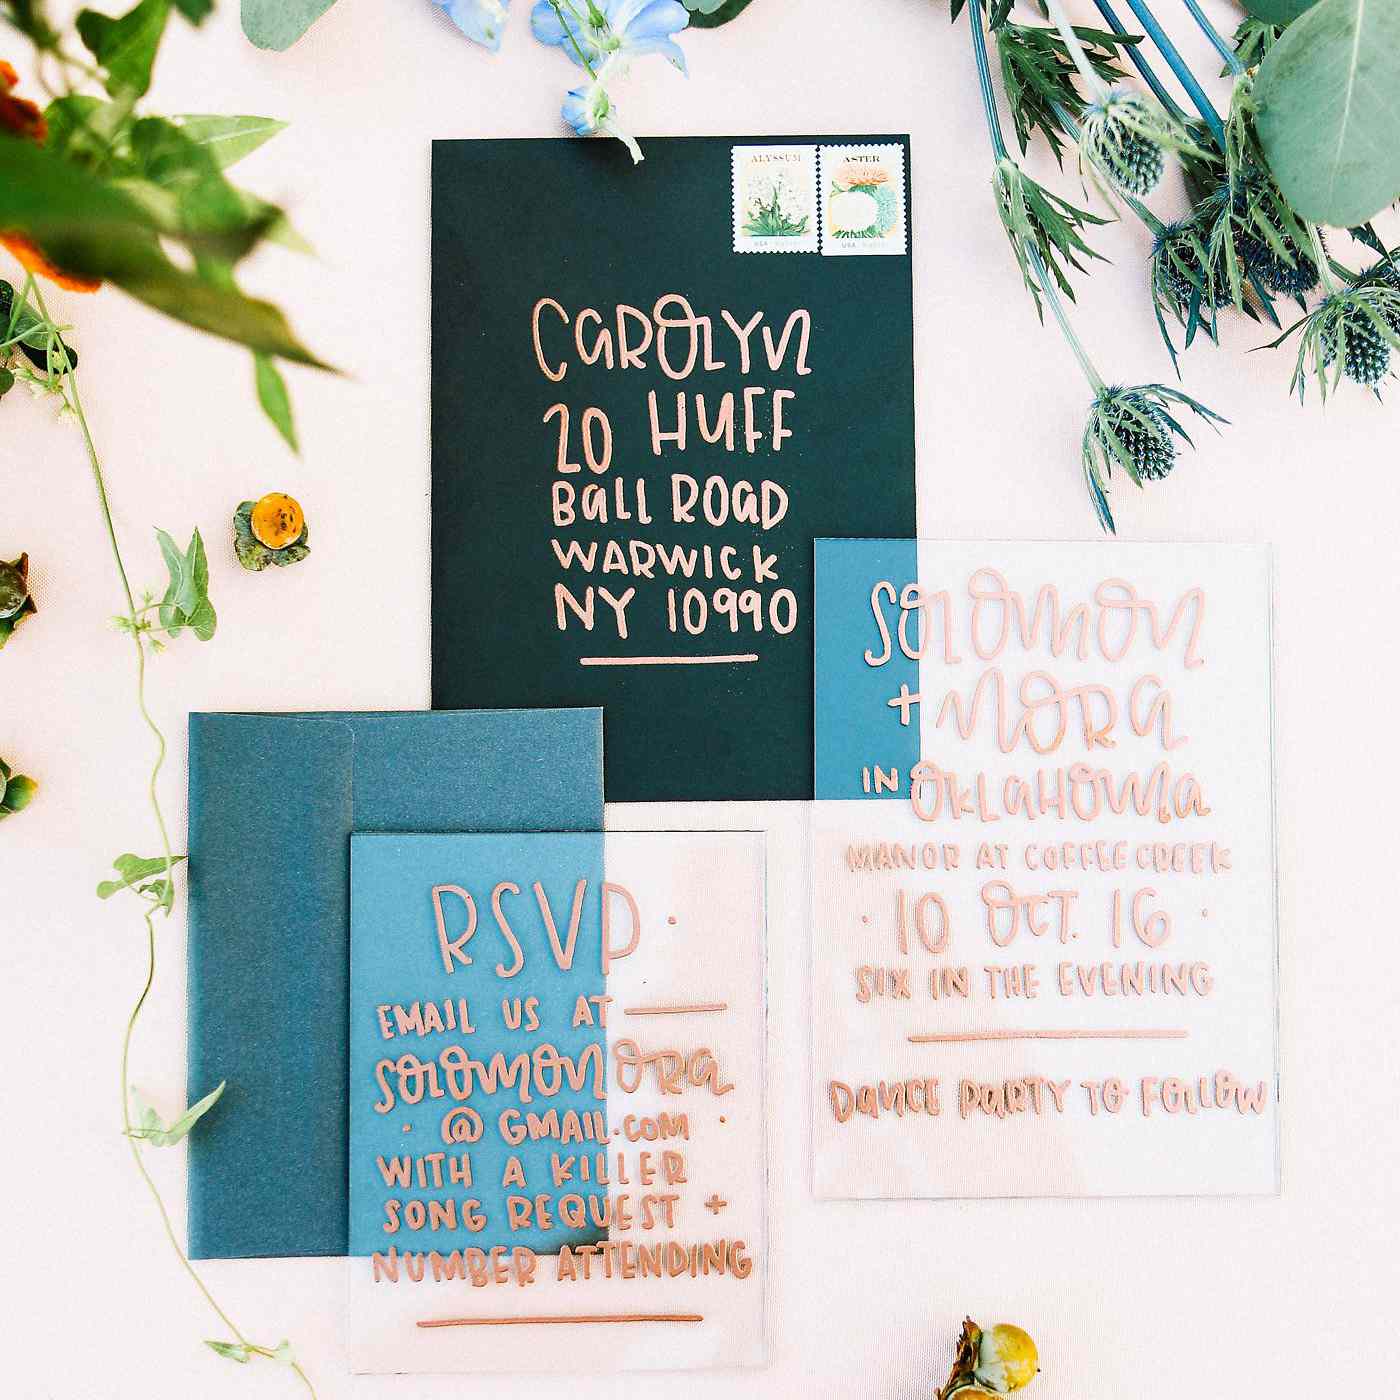 ALYSSUM
ASTER
USA
USA
CAROLYN
HUFF
20
BALL ROAD
WARWICK
NY 10990
SOLOMON
+ NORA
IN OKLAHOMA
MANOR AT COFFEE CREEK
· 10 OCT. 16 ·
SIX IN THE EVENING
DANCE PARTY TO FOLLOW
RSVP ·
EMAIL US AT
SOLOMONORA
· @ GMAIL.COM ·
WITH A KILLER
SONG REQUEST +
NUMBER ATTENDING